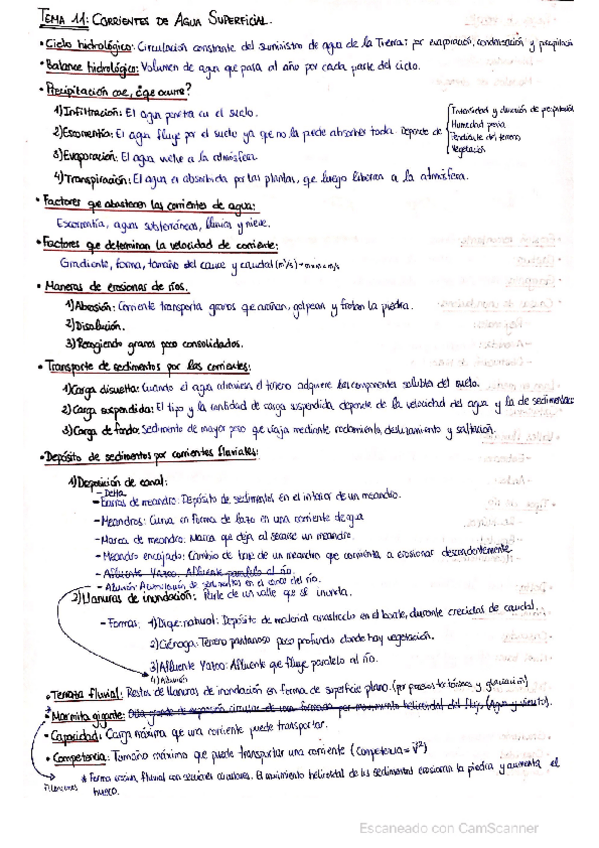 TEMA 11: CORRIENTES DE AGUA SUPERFICIAL.
• Ciclo hidrológico: Circulación constante del suministro de agua de la Tierra: por evaporación, condensación y precipitación
• Balance hidrológico: Volumen de agua que pasa al año por cada parte del ciclo.
• Precipitación cae, ¿qué ocurre?
1) Infiltración: El agua penetra en el suelo.
2) Escorrentía: El agua fluye por el suelo ya que no la puede absorber toda. Depende de
Intensidad y duración de precipitación
Humedad previa
Pendiente del terreno
Vegetación
3) Evaporación: El agua vuelve a la atmósfera
4) Transpiración: El agua es absorbida por las plantas, que luego liberan a la atmósfera.
• Factores que abastecen las corrientes de agua:
Escorrentía, aguas subterráneas, lluvia y nieve.
• Factores que determinan la velocidad de corriente:
Gradiente, forma, tamaño del cauce y caudal (m³/s)
• Maneras de erosionar de ríos.
1) Abrasión: Corriente transporta granos que arañan, golpean y frotan la piedra.
2) Disolución.
3) Recogiendo granos poco consolidados.
• Transporte de sedimentos por las corrientes:
1) Carga disuelta: Cuando el agua atraviesa el terreno adquiere los componentes solubles del suelo.
2) Carga suspendida: El tipo y la cantidad de carga suspendida depende de la velocidad del agua y la de sedimentación
3) Carga de fondo: Sedimento de mayor peso que viaja mediante rodamiento, deslizamiento y saltación.
• Depósito de sedimentos por corrientes fluviales:
1) Deposición de canal:
- Delta
- Barras de meandro: Depósito de sedimentos en el interior de un meandro.
- Meandros: Curva en forma de lazo en una corriente de agua
- Marca de meandro: Marca que deja al secarse un meandro.
- Meandro encajado: Cambio de base de un meandro que comienza a erosionar descendentemente
- Afluente Yazoo: Afluente paralelo al río.
- Aluvión: Acumulación de sedimentos en el cauce del río.
2) Llanuras de inundación: Parte de un valle que se inunda.
- Formas: 1) Dique natural: Depósito de material arrastrado en el borde, durante crecidas de caudal.
2) Ciénaga: Terreno pantanoso poco profundo donde hay vegetación.
3) Afluente Yazoo: Afluente que fluye paralelo al río.
4) Aluvión
• Terraza fluvial: Restos de llanuras de inundación en forma de superficie plana. (por procesos tectónicos y glaciación)
• Marmita gigante: movimiento helicoidal del flujo (Agua y viento).
• Capacidad: Carga máxima que una corriente puede transportar.
• Competencia: Tamaño máximo que puede transportar una corriente (Competencia = V²)
* Forma erosión fluvial con secciones circulares. El movimiento helicoidal de los sedimentos erosionan la piedra y aumenta el
hueco.
Escaneado con CamScanner